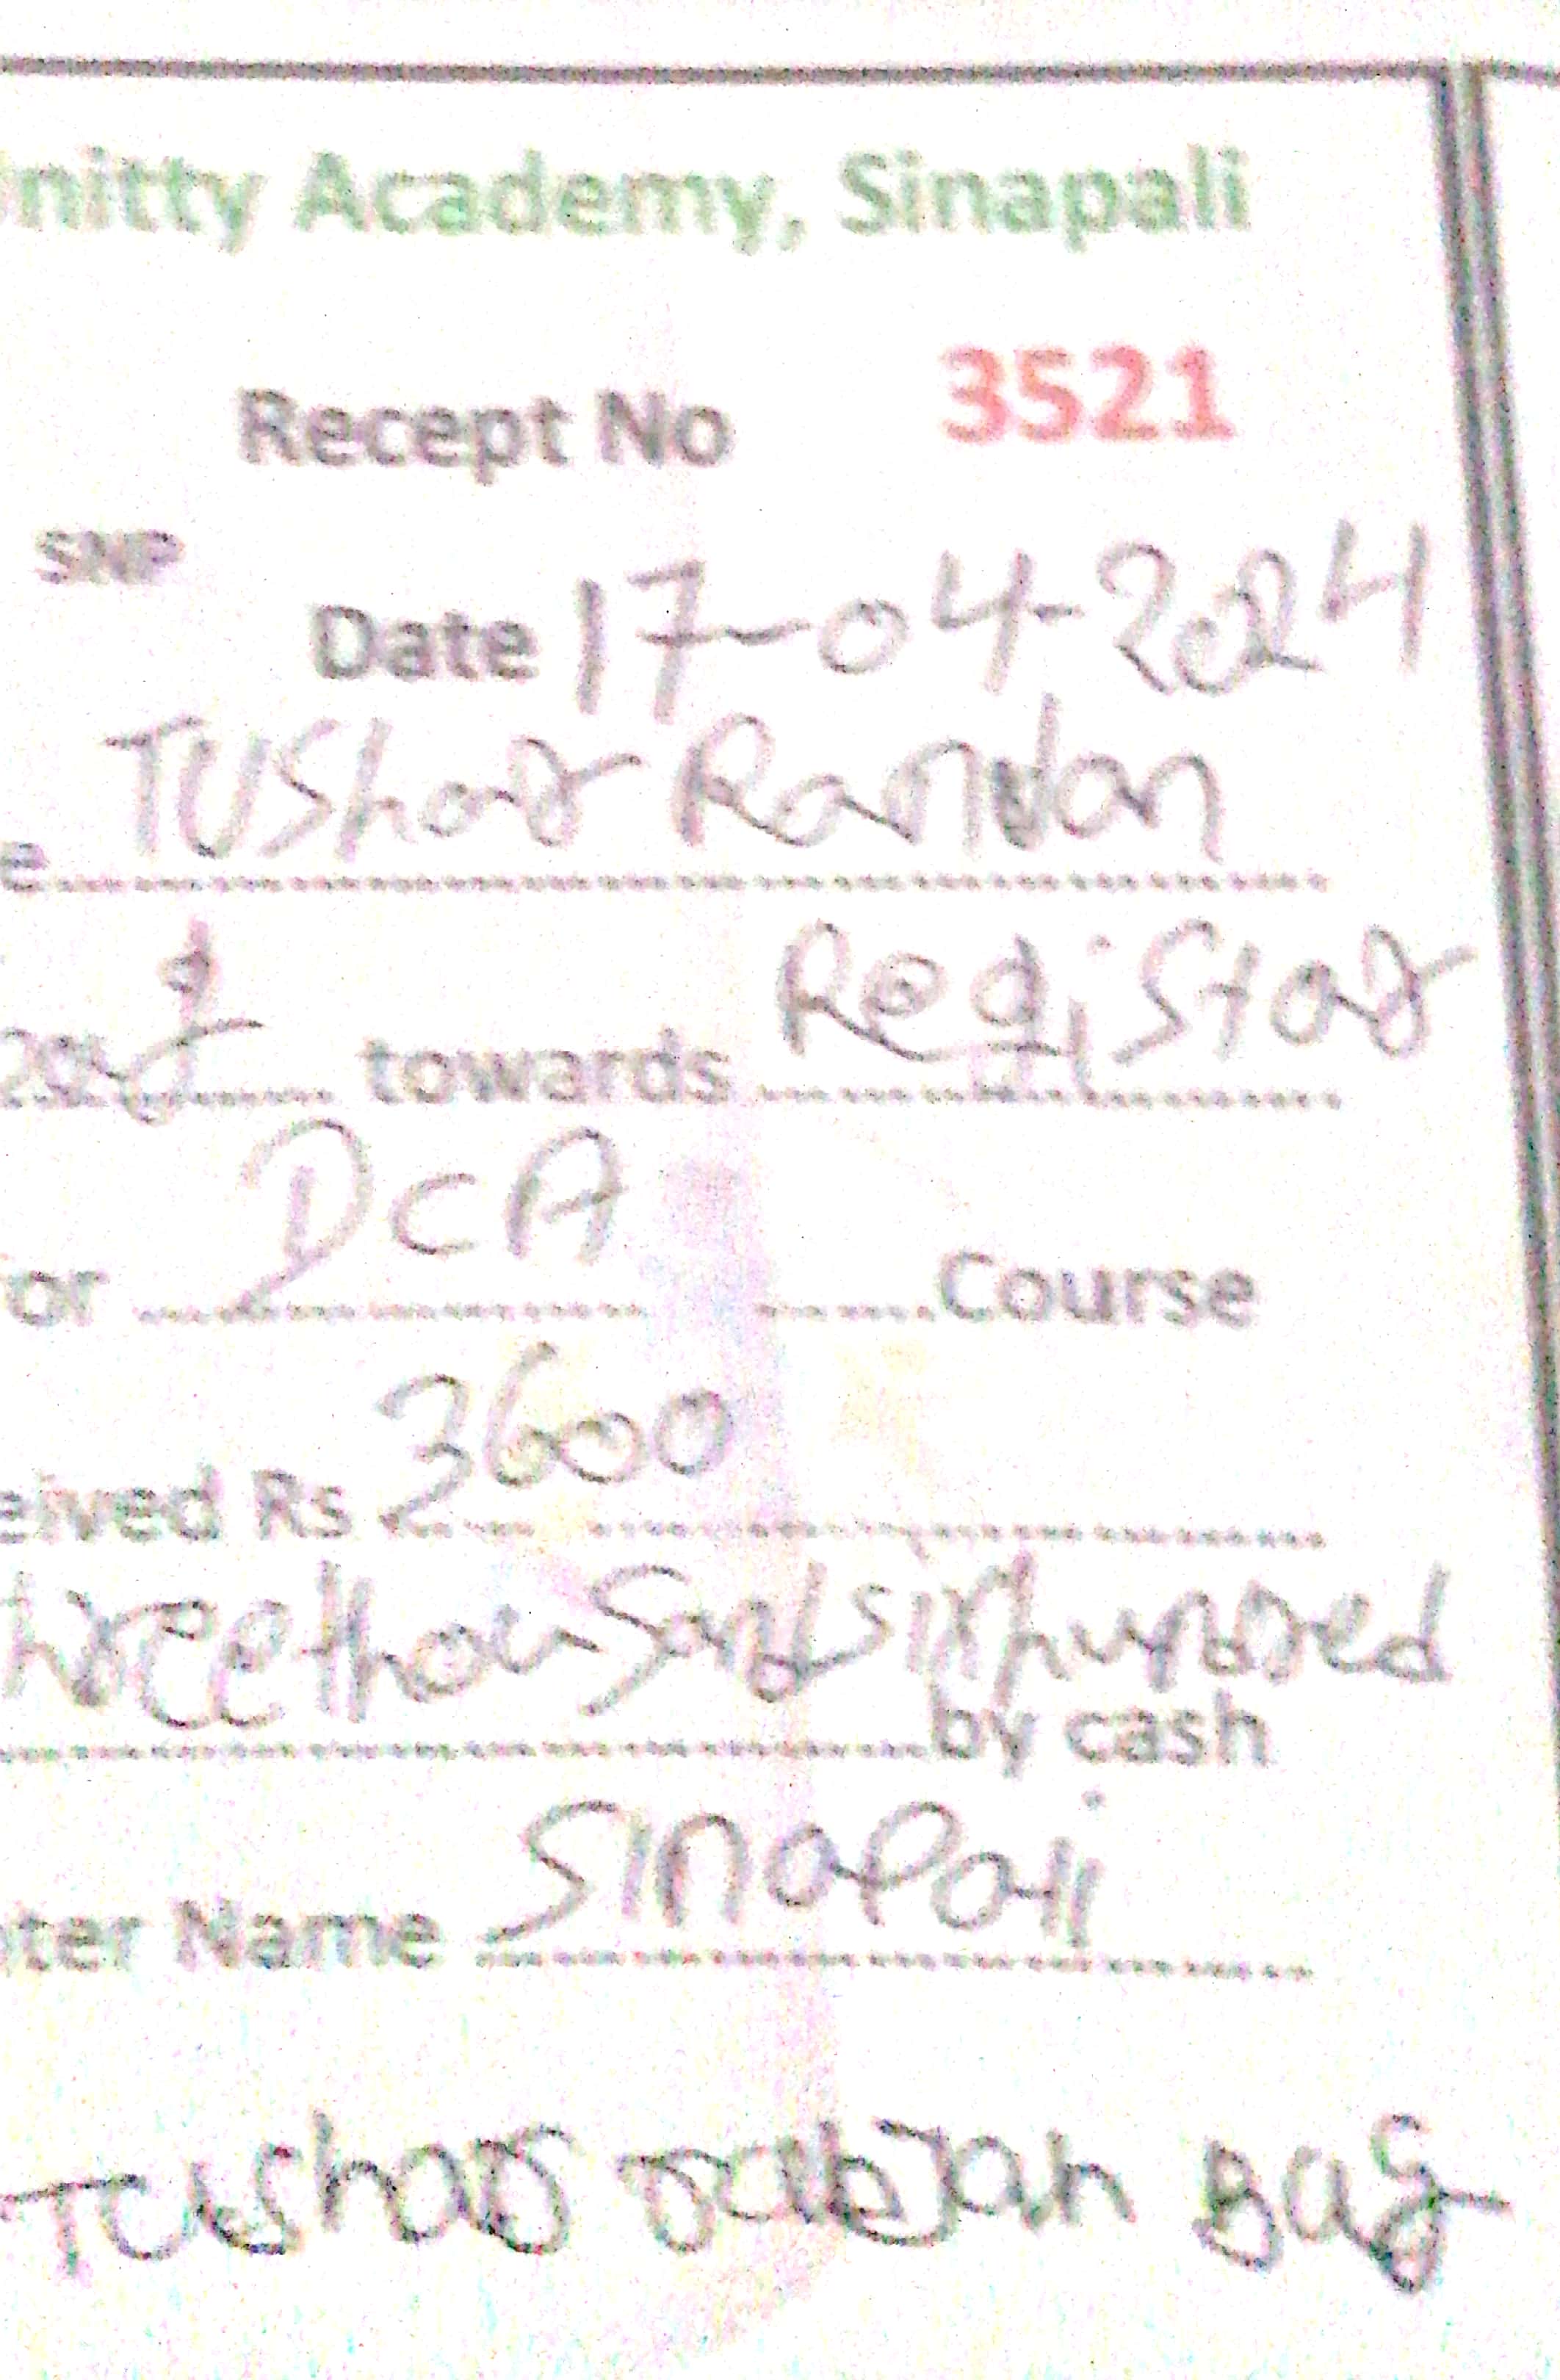 nitty Academy, Sinapali
Recept No 3521
SNP
Date 17-04-2024
e Tushar Ranjan
20 towards Registar
or DCA Course
eived Rs 3600
hree thousand six hundred
by cash
nter Name Sinapali
Tushar Ranjan Bag